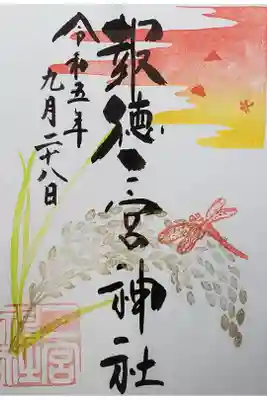 報徳二宮神社
令和五年
九月二十八日